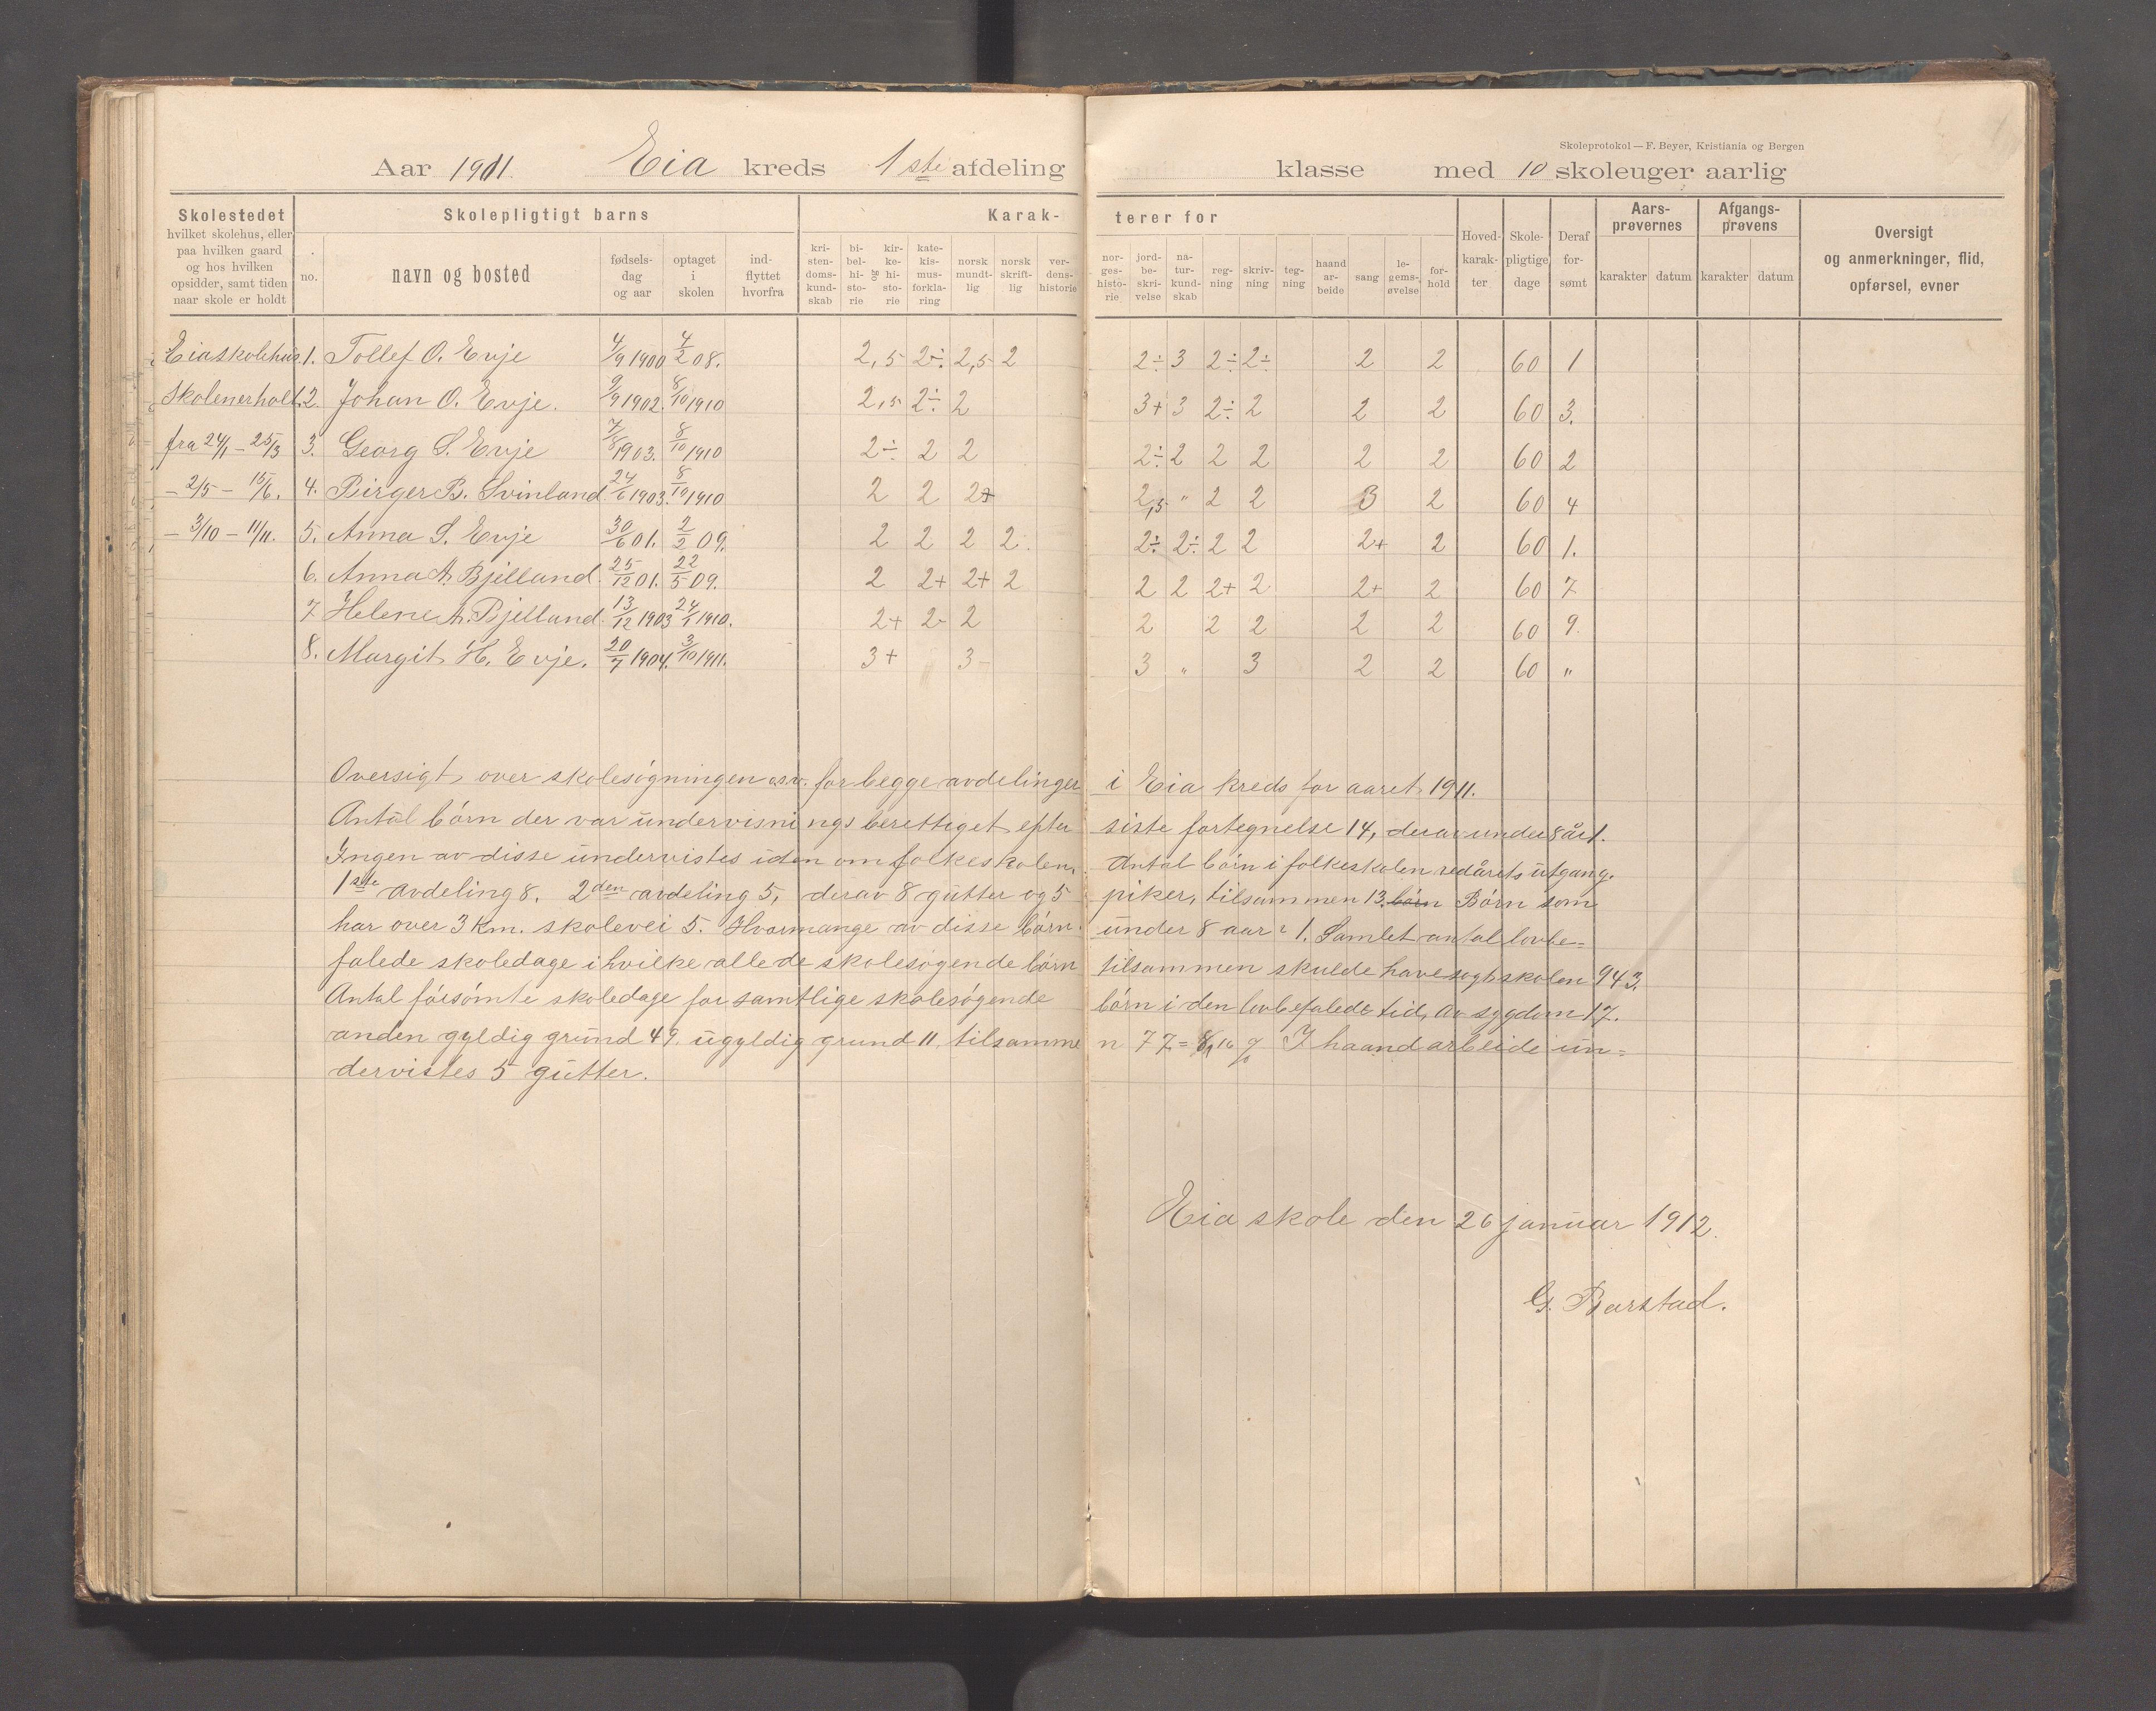 Skoleprotokol — F. Beyer, Kristiania og Bergen
Aar 1911. Eia kreds 1ste afdeling klasse med 10 skoleuger aarlig
Skolestedet hvilket skolehus, eller paa hvilken gaard og hos hvilken opsidder, samt tiden naar skole er holdt
Skolepligtigt barns
no. navn og bosted fødselsdag og aar optaget i skolen indflyttet hvorfra
Karakterer for
kristendomskundskab bibelhistorie og kirkehistorie katekismusforklaring norsk mundtlig norsk skriftlig verdenshistorie norgeshistorie jordbeskrivelse naturkundskab regning skrivning tegning haandarbeide sang legemsøvelse forhold
Hovedkarakter Skolepligtige dage Deraf forsømt
Aarsprøvernes karakter datum
Afgangsprøvens karakter datum
Oversigt og anmerkninger, flid, opførsel, evner
Eiaskolehus 1. Tollef O. Evje 4/9 1900 4/2 08. 2,5 2÷ 2,5 2 2÷ 3 2÷ 2÷ 2 2 60 1
Skolenerholt. 2. Johan O. Evje. 9/9 1902. 8/10 1910 2,5 2÷ 2 3+ 3 2÷ 2 2 2 60 3.
fra 24/1 - 25/3 3. Georg S. Evje 7/8 1903. 8/10 1910 2÷ 2 2 2÷ 2 2 2 2 2 60 2
- 2/5 - 15/6. 4. Birger B. Svinland 24/6 1903. 8/10 1910 2 2 2+ 2,5 " 2 2 3 2 60 4
- 3/10 - 11/11. 5. Anna S. Evje 30/6 01. 2/2 09. 2 2 2 2. 2÷ 2÷ 2 2 2+ 2 60 1.
6. Anna A. Bjelland 25/12 01. 22/5 09. 2 2+ 2+ 2 2 2 2+ 2 2+ 2 60 7
7 Helene A. Bjelland. 13/12 1903 24/1 1910. 2+ 2- 2 2 2 2 2 2 60 9.
8. Margit H. Evje. 20/7 1904. 3/10 1911. 3+ 3- 3 " 3 2 2 60 "
Oversigt over skolesøgningen o.s.v. for begge avdelinger i Eia kreds for aaret 1911.
Antal børn der var undervisningsberettiget efter siste fortegnelse 14, derav under 8 år 1.
Ingen av disse undervistes uden om folkeskolen. Antal børn i folkeskolen ved årets utgang.
1ste avdeling 8. 2den avdeling 5, derav 8 gutter og 5 piker, tilsammen 13. børn Børn som
har over 3 km. skolevei 5. Hvormange av disse børn under 8 aar? 1. Samlet antal lovbe=
falede skoledage i hvilke alle de skolesøgende børn tilsammen skulde have søgt skolen 943.
Antal forsømte skoledage for samtlige skolesøgende børn i den lovbefalede tid, av sygdom 17.
anden gyldig grund 49. ugyldig grund 11. tilsammen 77 = 8,16 % I haandarbeide un=
dervistes 5 gutter.
Eia skole den 26 januar 1912.
G. Barstad.